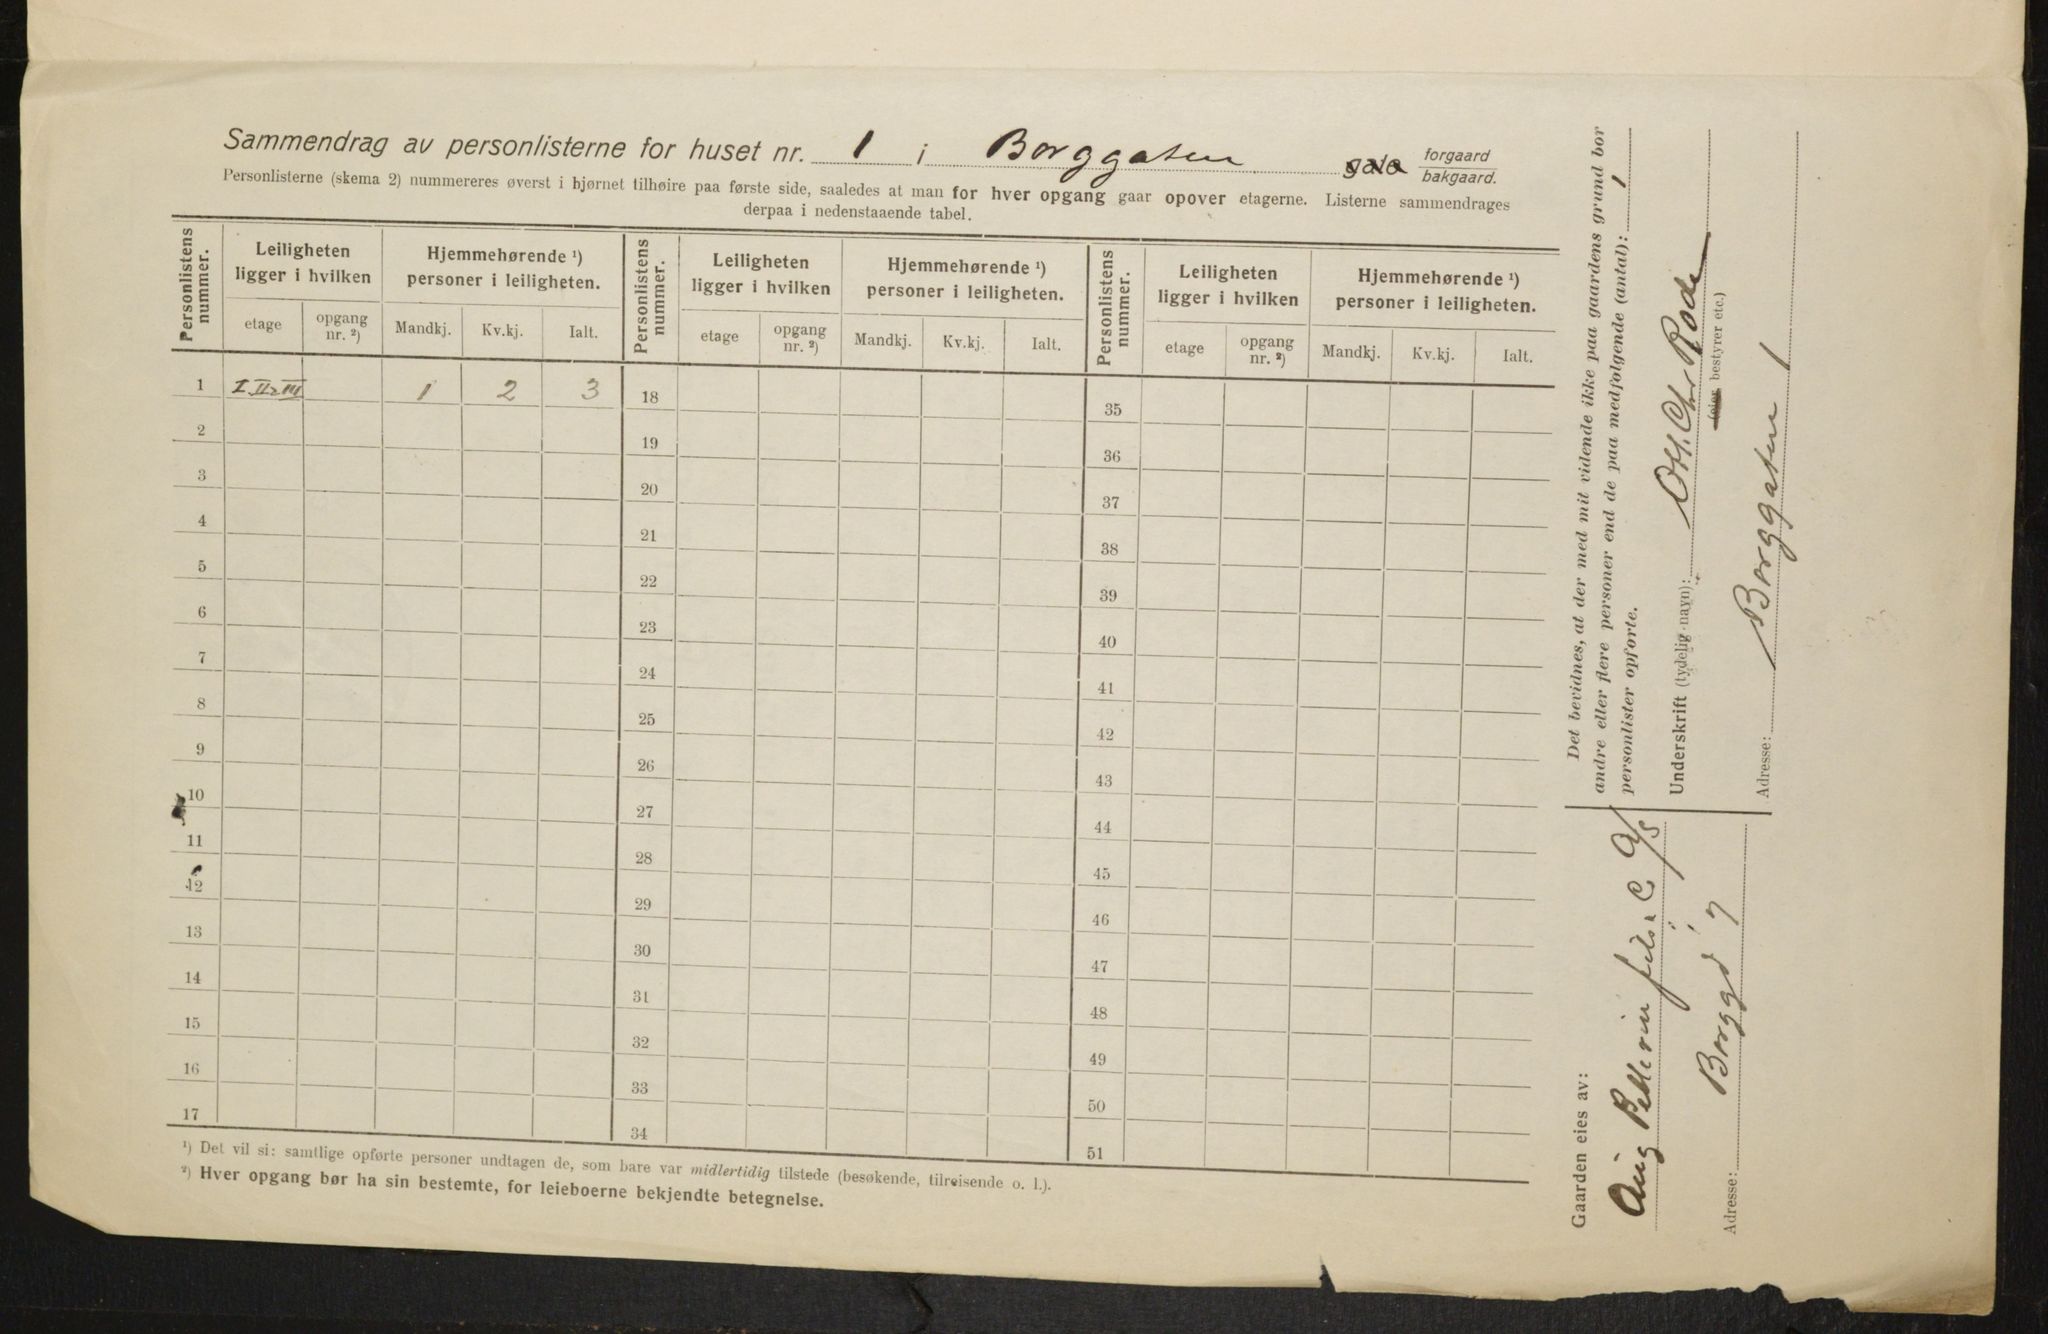 Sammendrag av personlisterne for huset nr. 1 i Borggaten gate forgaard bakgaard.
Personlisterne (skema 2) nummereres øverst i hjørnet tilhøire paa første side, saaledes at man for hver opgang gaar opover etagerne. Listerne sammendrages
derpaa i nedenstaaende tabel.
Personlistens nummer. Leiligheten ligger i hvilken Hjemmehørende ¹) personer i leiligheten. Personlistens nummer. Leiligheten ligger i hvilken Hjemmehørende ¹) personer i leiligheten. Personlistens nummer. Leiligheten ligger i hvilken Hjemmehørende ¹) personer i leiligheten.
etage opgang nr. ²) Mandkj. Kv.kj. Ialt. etage opgang nr. ²) Mandkj. Kv.kj. Ialt. etage opgang nr. ²) Mandkj. Kv.kj. Ialt.
1 I II & III 1 2 3 18 35
2 19 36
3 20 37
4 21 38
5 22 39
6 23 40
7 24 41
8 25 42
9 26 43
10 27 44
11 28 45
12 29 46
13 30 47
14 31 48
15 32 49
16 33 50
17 34 51
¹) Det vil si: samtlige opførte personer undtagen de, som bare var midlertidig tilstede (besøkende, tilreisende o. l.).
²) Hver opgang bør ha sin bestemte, for leieboerne bekjendte betegnelse.
Det bevidnes, at der med mit vidende ikke paa gaardens grund bor
andre eller flere personer end de paa medfolgende (antal): 1
personlister opforte.
Underskrift (tydelig navn): Chr Rode
(eier bestyrer etc.)
Adresse: Borggaten 1
Gaarden eies av:
Aug Pellerin fils & C A/S
Adresse: Borggd 7